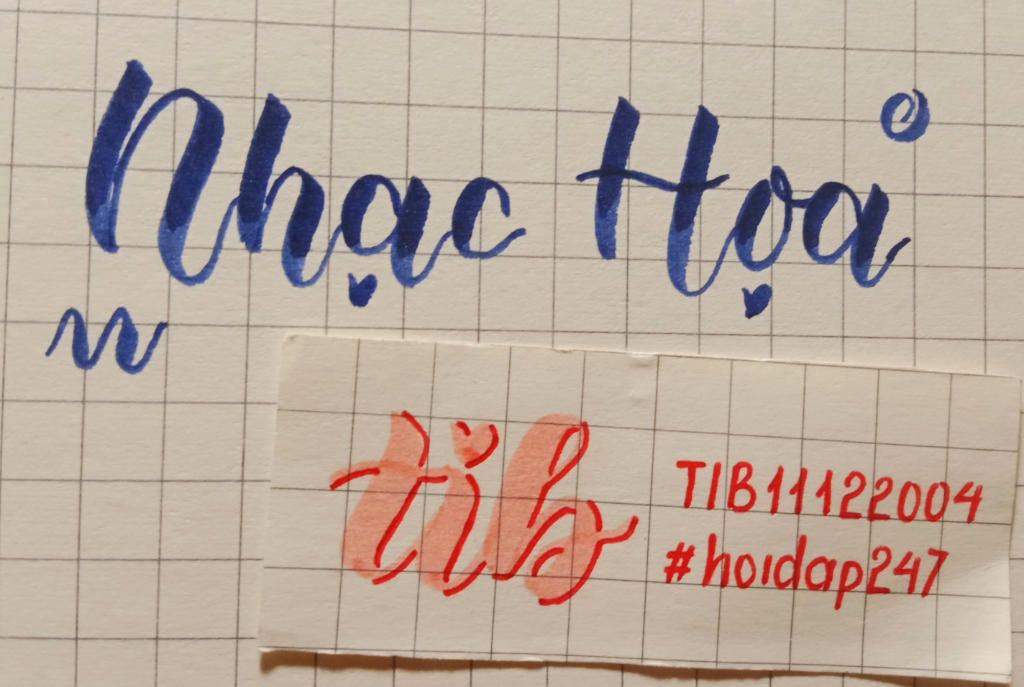 Nhạc Họa
tib
TIB11122004
#hoidap247